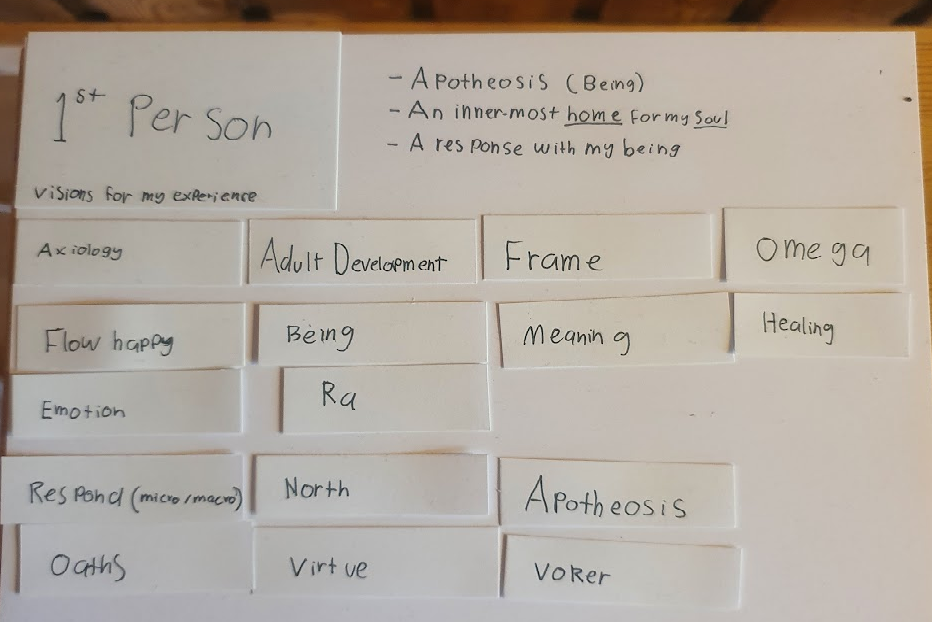 1st Person
Visions for my experience
- Apotheosis (Being)
- An inner-most home for my Soul
- A response with my being
Axiology
Adult Development
Frame
Omega
Flow happy
Being
Meaning
Healing
Emotion
Ra
Respond (micro/macro)
North
Apotheosis
Oaths
Virtue
Voker